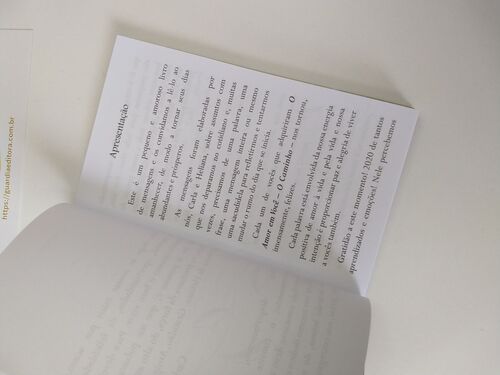 https://guardiaeditora.com.br
Apresentação
Este é um pequeno e amoroso livro
de mensagens, e os convidamos a lê-lo ao
amanhecer, de modo a tornar seus dias
abundantes e prósperos.
As mensagens foram elaboradas por
nós, Carla e Heliana, sobre assuntos com
que nos deparamos no cotidiano e, muitas
vezes, precisamos de uma palavra, uma
frase, uma mensagem inteira ou mesmo
uma sacudidela para refletirmos e tentarmos
mudar o rumo do dia que se inicia.
Cada um de vocês que adquiriram O
Amor em Você – O Caminho – nos tornou,
imensamente, felizes.
Cada palavra está envolvida da nossa energia
positiva de amor à vida e pela vida e nossa
intenção é proporcionar paz e alegria de viver
a vocês também.
Gratidão a este momento! 2020 de tantos
aprendizados e emoções! Nele percebemos